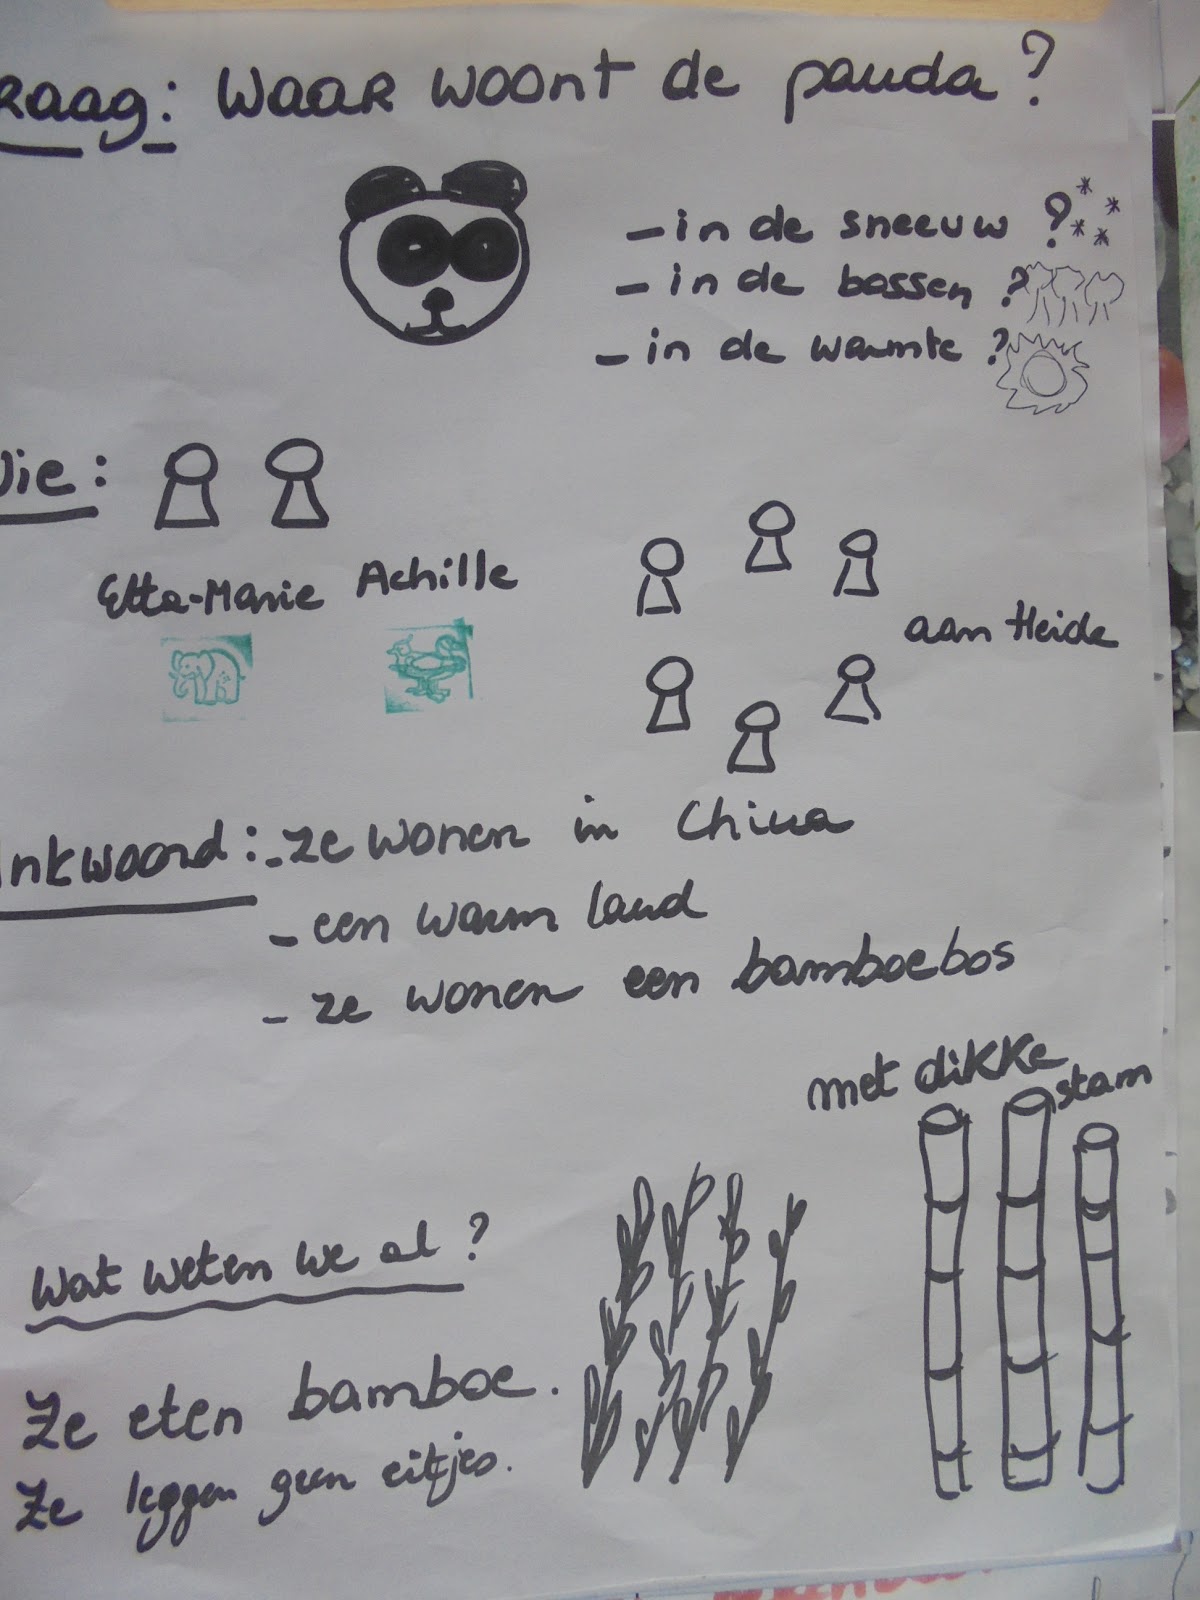 raag: Waar woont de panda?
- in de sneeuw ?
- in de bossen ?
- in de warmte ?
Wie:
Etta-Marie Achille
aan Heide
Antwoord: - ze wonen in China
- een warm land
- ze wonen een bamboebos
met dikke stam
Wat weten we al?
Ze eten bamboe.
Ze leggen geen eitjes.